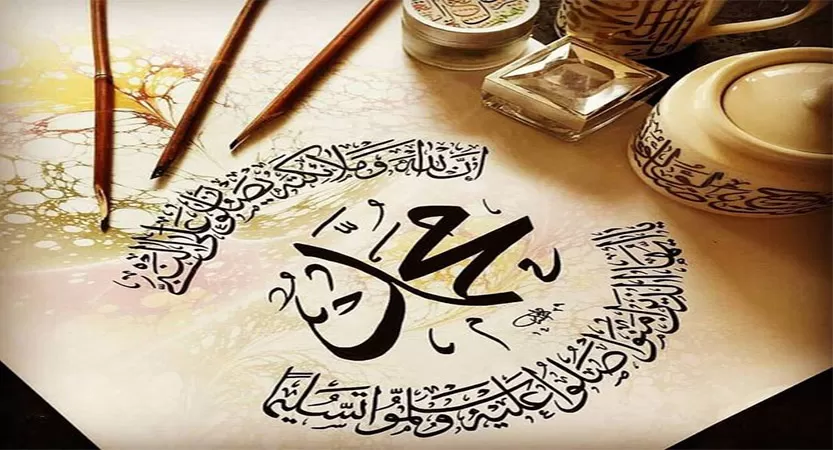 إن الله وملائكته يصلون على النبي
محمد
يا أيها الذين آمنوا صلوا عليه وسلموا تسليما